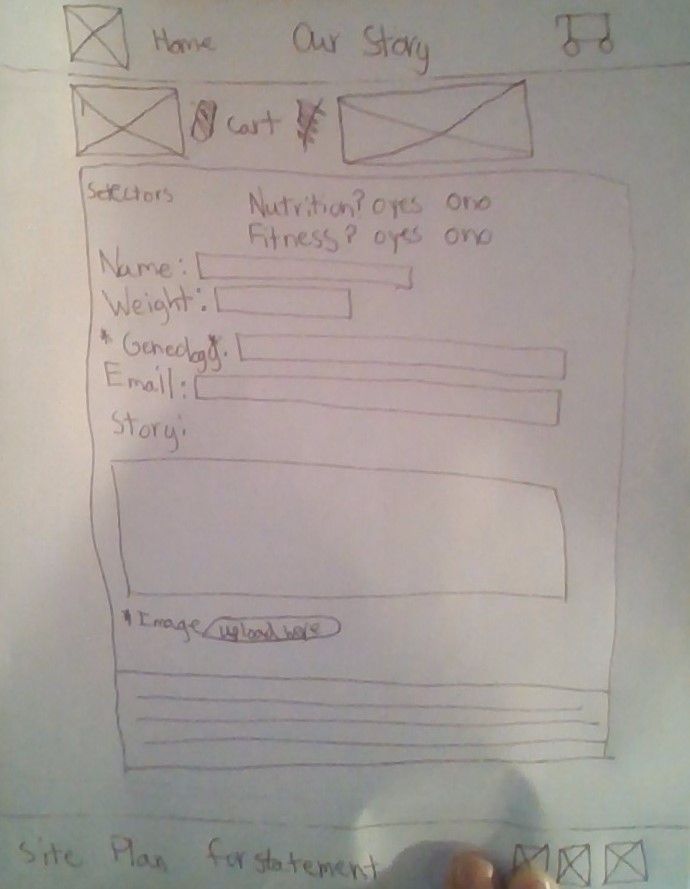 Home Our Story
Cart
Selectors
Nutrition? o yes o no
Fitness? o yes o no
Name:
Weight:
* Geneology.
Email:
Story:
* Image upload here
Site Plan for statement